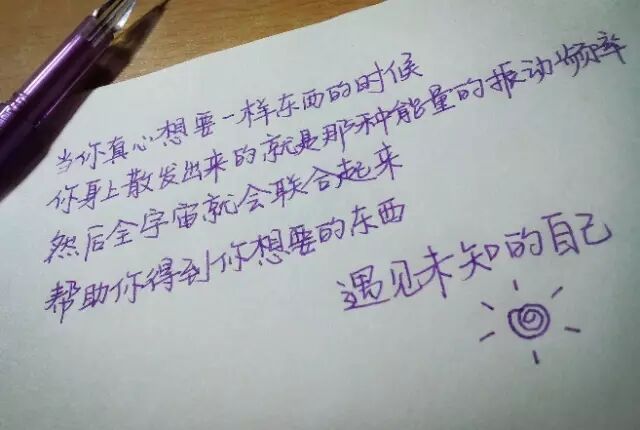 当你真心想要一样东西的时候
你身上散发出来的就是那种能量的振动频率
然后全宇宙就会联合起来
帮助你得到你想要的东西
遇见未知的自己